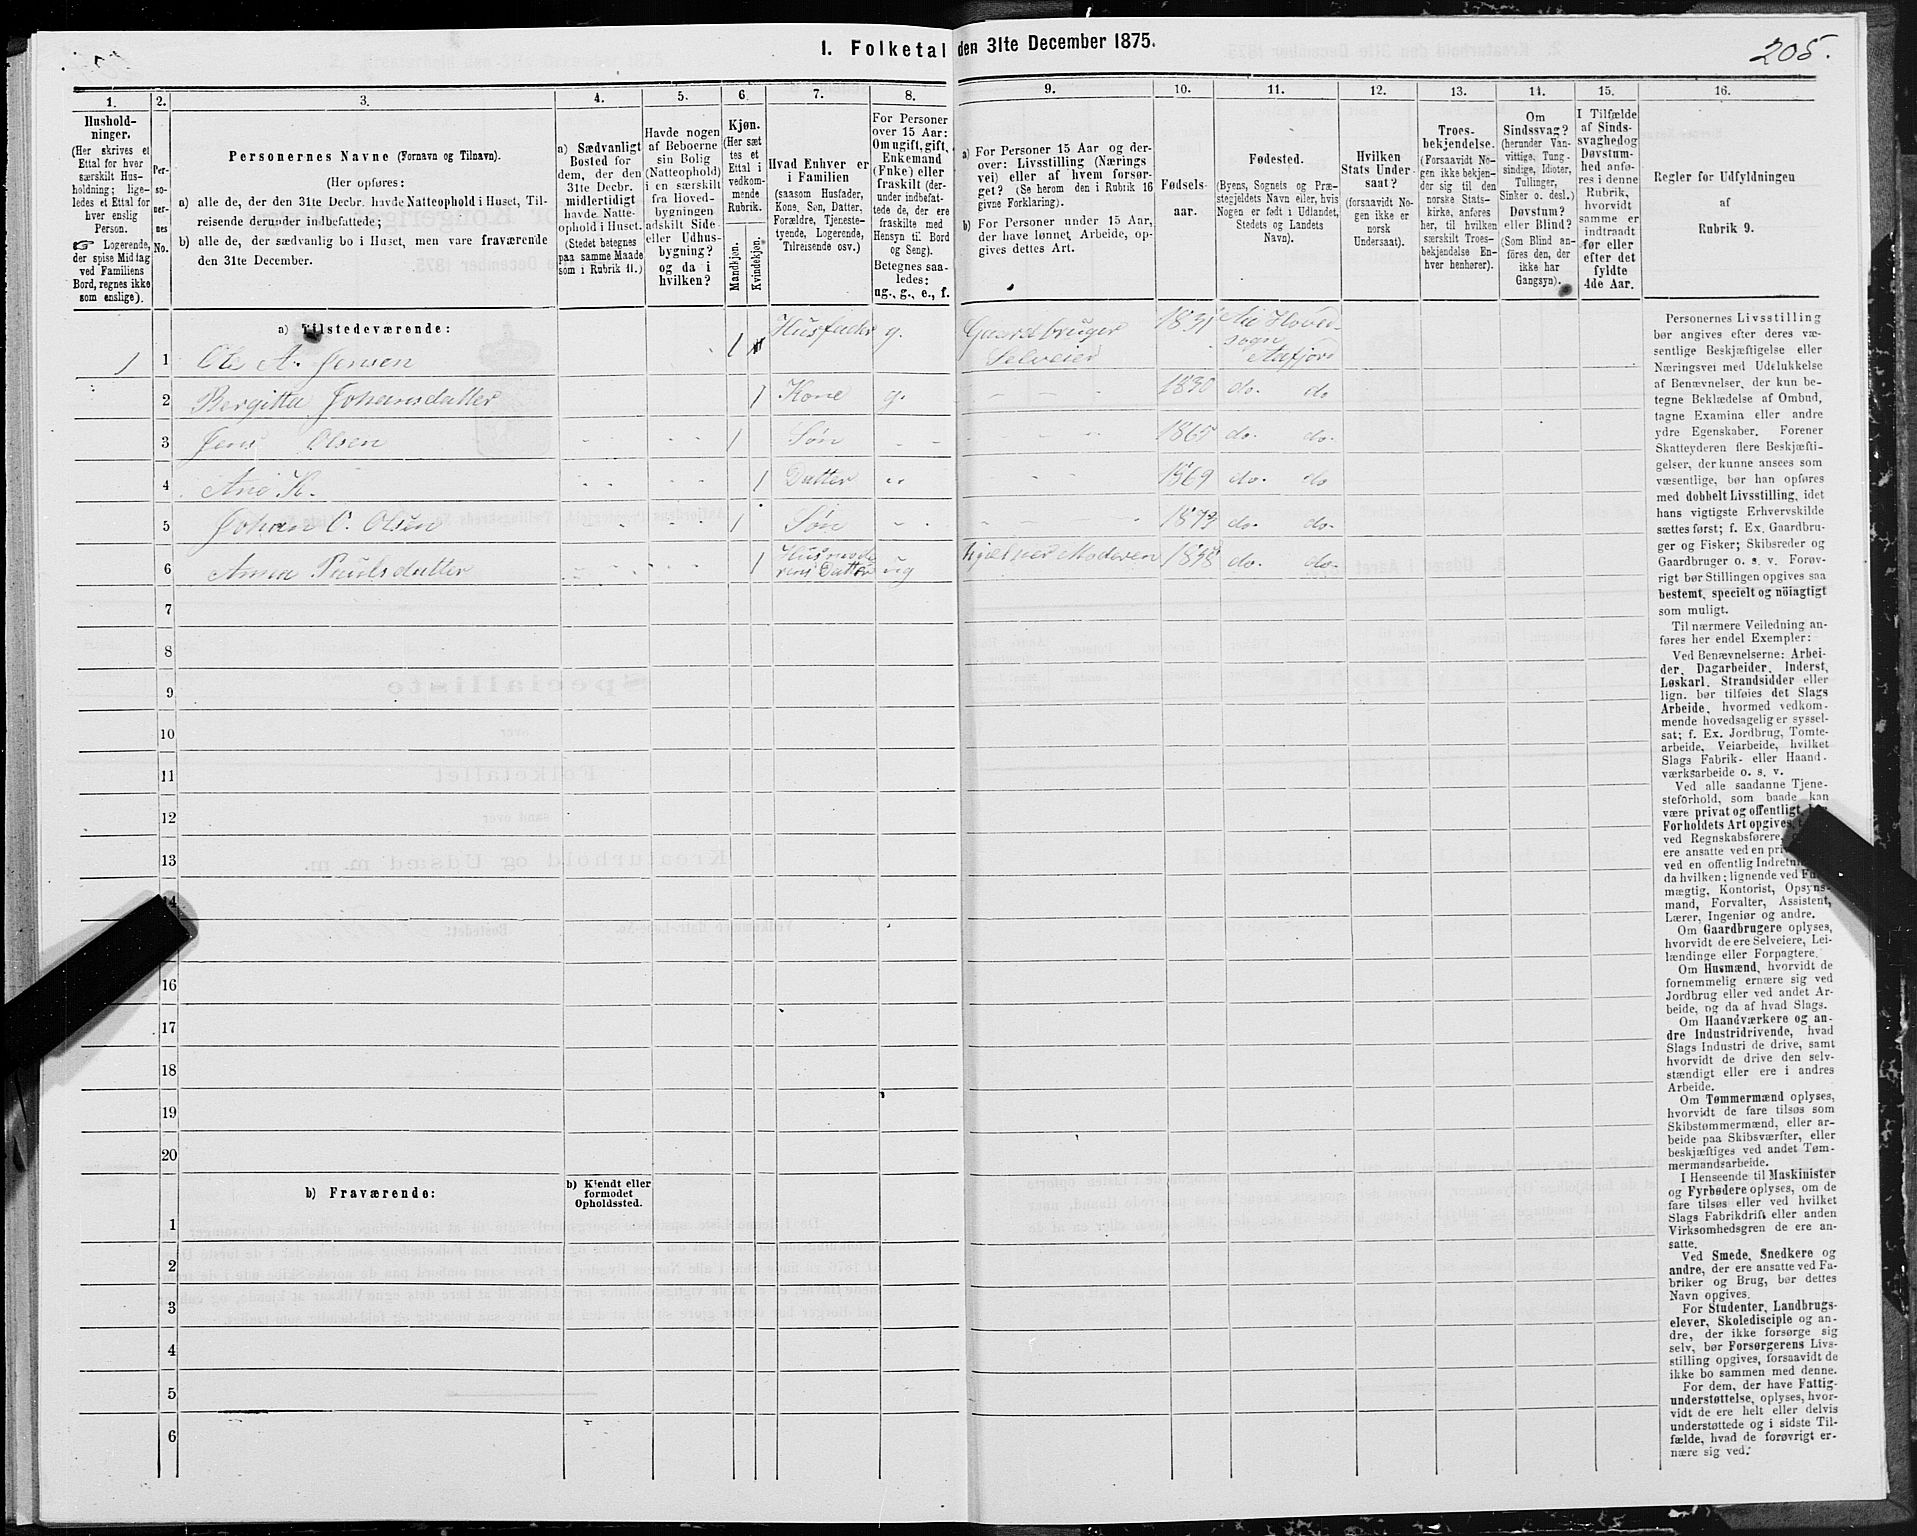 I. Folketal den 31te December 1875.
205.
1.
2.
3.
4.
5.
6.
7.
8.
9.
10.
11.
12.
13.
14.
15.
16.
Hushold-
ninger.
(Her skrives et
Ettal for hver
særskilt Hus-
holdning; lige-
ledes et Ettal for
hver enslig
Person.
☞ Logerende,
der spise Middag
ved Familiens
Bord, regnes ikke
som enslige).
Per-
so-
ner-
nes
No.
Personernes Navne (Fornavn og Tilnavn).
(Her opføres:
a) alle de, der den 31te Decbr. havde Natteophold i Huset, Til-
reisende derunder indbefattede;
b) alle de, der sædvanlig bo i Huset, men vare fraværende
den 31te December.
a) Sædvanligt
Bosted for
dem, der den
31te Decbr.
midlertidigt
havde Natte-
ophold i Huset.
(Stedet betegnes
paa samme Maade
som i Rubrik 11.)
Havde nogen
af Beboerne
sin Bolig
(Natteophold)
i en særskilt
fra Hoved-
bygningen
adskilt Side-
eller Udhus-
bygning?
og da i
hvilken?
Kjøn.
(Her sæt
tes et
Ettal i
vedkom-
mende
Rubrik.
Mandkjøn.
Kvindekjøn.
Hvad Enhver er
i Familien
(saasom Husfader,
Kone, Søn, Datter,
Forældre, Tjeneste-
tyende, Logerende,
Tilreisende osv.)
For Personer
over 15 Aar:
Om ugift, gift,
Enkemand
(Enke) eller
fraskilt (der-
under indbefat-
tede de, der ere
fraskilte med
Hensyn til Bord
og Seng).
Betegnes saa-
ledes:
ug., g., e., f.
a) For Personer 15 Aar og der-
over: Livsstilling (Nærings
vei) eller af hvem forsør-
get? (Se herom den i Rubrik 16
givne Forklaring).
b) For Personer under 15 Aar,
der have lønnet Arbeide, op-
gives dettes Art.
Fødsels-
aar.
Fødested.
(Byens, Sognets og Præ-
stegjeldets Navn eller, hvis
Nogen er født i Udlandet,
Stedets og Landets
Navn).
Hvilken
Stats Under-
saat?
(forsaavidt No-
gen ikke er
norsk
Undersaat).
Troes-
bekjendelse.
(Forsaavidt No-
gen ikke bekjen-
der sig til den
norske Stats-
kirke, anføres
her, til hvilken
særskilt Troes-
bekjendelse En-
hver henhører).
Om
Sindssvag?
(herunder Van-
vittige, Tung-
sindige, Idioter,
Tullinger,
Sinker o. desl.)
Døvstum?
eller Blind?
(Som Blind an-
føres den, der
ikke har
Gangsyn).
I Tilfælde
af Sinds-
svaghed og
Døvstum-
hed anfø-
res i denne
Rubrik,
hvorvidt
samme er
indtraadt
før eller
efter det
fyldte
4de Aar.
Regler for Udfyldningen
af
Rubrik 9.
a) Tilstedeværende:
1 1 Ole A. Jensen 1 Husfader g. Gaardbruger Selveier 1831 Hoved-
sogn
Aafjord
2 Bergitta Johansdatter 1 Kone g. 1830 do. do
3 Jens Olsen 1 Søn 1865 do. do.
4 Ane K. 1 Datter 1869 do. do
5 Johan O. Olsen 1 Søn 1873 do. do.
6 Anna Paulsdatter 1 Datter ug hjælper Moderen 1838 do. do.
7
8
9
10
11
12
13
14
16
17
18
19
20
b) Fraværende:
b) Kjendt eller
formodet
Opholdssted.
1
2
3
4
5
6
Personernes Livsstilling
bør angives efter deres væ-
sentlige Beskjæftigelse eller
Næringsvei med Udelukkelse
af Benævnelser, der kun be-
tegne Beklædelse af Ombud,
tagne Examina eller andre
ydre Egenskaber. Forener
Skatteyderen flere Beskjæfti-
gelser, der kunne ansees som
væsentlige, bør han opføres
med dobbelt Livsstilling, idet
hans vigtigste Erhvervskilde
sættes først; f. Ex. Gaardbru-
ger og Fisker; Skibsreder og
Gaardbruger o. s. v. Forøv-
rigt bør Stillingen opgives saa
bestemt, specielt og nöiagtigt
som muligt.
Til nærmere Veiledning an-
føres her endel Exempler:
Ved Benævnelserne: Arbei-
der, Dagarbeider, Inderst,
Løskarl, Strandsidder eller
lign. bør tilføies det Slags
Arbeide, hvormed vedkom-
mende hovedsagelig er syssel-
sat; f. Ex. Jordbrug, Tomte-
arbeide, Veiarbeide, hvilket
Slags Fabrik- eller Haand-
værksarbeide o. s. v.
Ved alle saadanne Tjene-
steforhold, som baade kan
være privat og offentligt,
Forholdets Art opgives,
ved Regnskabsførere,
ere ansatte ved en
ved en offentlig
da hvilken; lignende ved
mægtig, Kontorist, Opsyns-
mand, Forvalter, Assistent,
Lærer, Ingeniør og andre.
Om Gaardbrugere oplyses,
hvorvidt de ere Selveiere, Lei-
lændinge eller Forpagtere.
Om Husmænd, hvorvidt de
fornemmelig ernære sig ved
Jordbrug eller ved andet Ar-
beide, og da af hvad Slags.
Om Haandværkere og an-
dre Industridrivende, hvad
Slags Industri de drive, samt
hvorvidt de drive den selv-
stændigt eller ere i andres
Arbeide.
Om Tømmermænd oplyses,
hvorvidt de fare tilsøs som
Skibstømmermænd, eller ar-
beide paa Skibsværfter, eller
beskjæftiges ved andet Tøm-
mermandsarbeide.
I Henseende til Maskinister
og Fyrbødere oplyses, om de
fare tilsøs eller ved hvilket
Slags Fabrikdrift eller anden
Virksomhedsgren de ere an-
satte.
Ved Smede, Snedkere og
andre, der ere ansatte ved Fa-
briker og Brug, bør dettes
Navn opgives.
For Studenter, Landbrugs-
elever, Skoledisciple og an-
dre, der ikke forsørge sig
selv, bør Forsørgerens Livs-
stilling opgives, forsaavidt de
ikke bo sammen med denne.
For dem, der have Fattig-
understøttelse, oplyses, hvor-
vidt de ere helt eller delvis
understøttede og i sidste Til-
fælde, hvad de forøvrigt er-
nære sig ved.